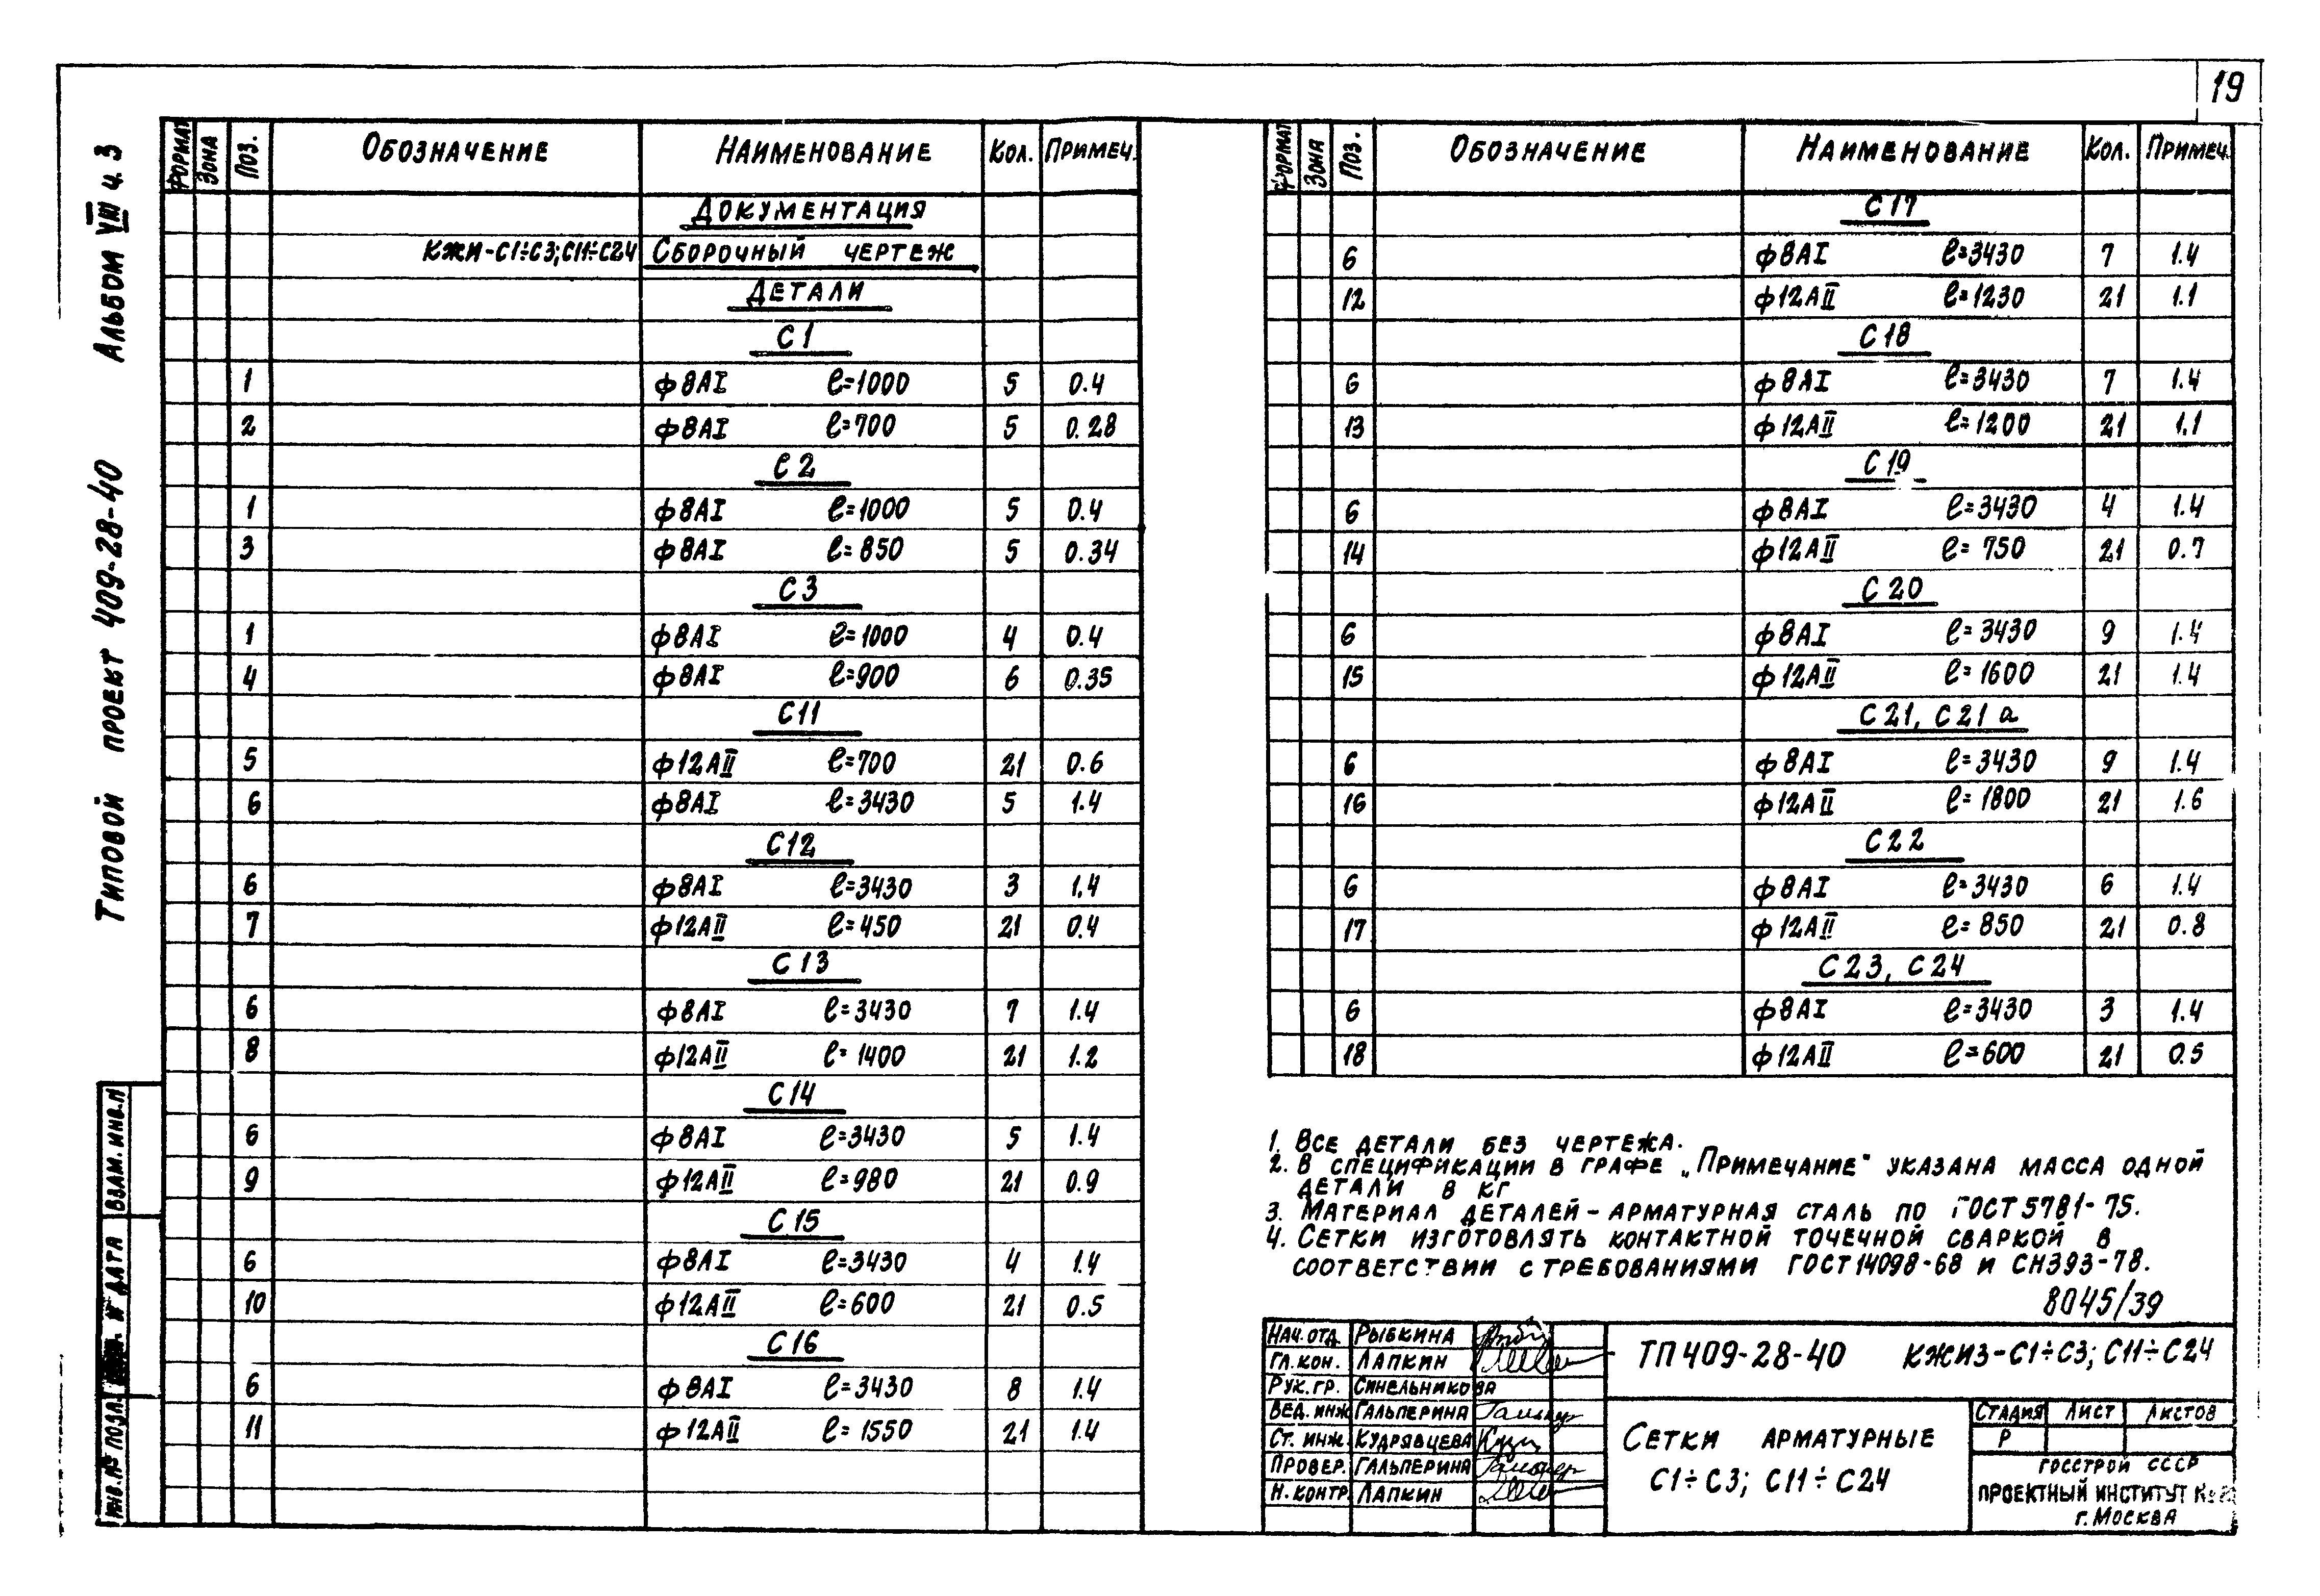 19
Альбом VIII ч. 3
Типовой проект 409-28-40
Взам. инв. N
Инв. № подл.
Формат Зона Поз. Обозначение Наименование Кол. Примеч.
Документация
КЖИ-С1÷С3; С11÷С24 Сборочный чертеж
Детали
С1
1 ф8АI ℓ=1000 5 0.4
2 ф8АI ℓ=700 5 0.28
С2
1 ф8АI ℓ=1000 5 0.4
3 ф8АI ℓ=850 5 0.34
С3
1 ф8АI ℓ=1000 4 0.4
4 ф8АI ℓ=900 6 0.35
С11
5 ф12АII ℓ=700 21 0.6
6 ф8АI ℓ=3430 5 1.4
С12
6 ф8АI ℓ=3430 3 1.4
7 ф12АII ℓ=450 21 0.4
С13
6 ф8АI ℓ=3430 7 1.4
8 ф12АII ℓ=1400 21 1.2
С14
6 ф8АI ℓ=3430 5 1.4
9 ф12АII ℓ=980 21 0.9
С15
6 ф8АI ℓ=3430 4 1.4
10 ф12АII ℓ=600 21 0.5
С16
6 ф8АI ℓ=3430 8 1.4
11 ф12АII ℓ=1550 21 1.4
Формат Зона Поз. Обозначение Наименование Кол. Примеч.
С17
6 ф8АI ℓ=3430 7 1.4
12 ф12АII ℓ=1230 21 1.1
С18
6 ф8АI ℓ=3430 7 1.4
13 ф12АII ℓ=1200 21 1.1
С19
6 ф8АI ℓ=3430 4 1.4
14 ф12АII ℓ=750 21 0.7
С20
6 ф8АI ℓ=3430 9 1.4
15 ф12АII ℓ=1600 21 1.4
С21, С21а
6 ф8АI ℓ=3430 9 1.4
16 ф12АII ℓ=1800 21 1.6
С22
6 ф8АI ℓ=3430 6 1.4
17 ф12АII ℓ=850 21 0.8
С23, С24
6 ф8АI ℓ=3430 3 1.4
18 ф12АII ℓ=600 21 0.5
1. Все детали без чертежа.
2. В спецификации в графе „Примечание" указана масса одной
детали в кг
3. Материал деталей - арматурная сталь по ГОСТ 5781-75.
4. Сетки изготовлять контактной точечной сваркой в
соответствии с требованиями ГОСТ 14098-68 и СН393-78.
8045/39
Нач. отд. Рыбкина
Гл. кон. Лапкин
Рук. гр. Синельникова
Вед. инж. Гальперина
Ст. инж. Кудрявцева
Провер. Гальперина
Н. контр. Лапкин
ТП 409-28-40 КЖИ3-С1÷С3; С11÷С24
Сетки арматурные
С1÷С3; С11÷С24
Стадия Лист Листов
Р
Госстрой СССР
Проектный институт №
г. Москва